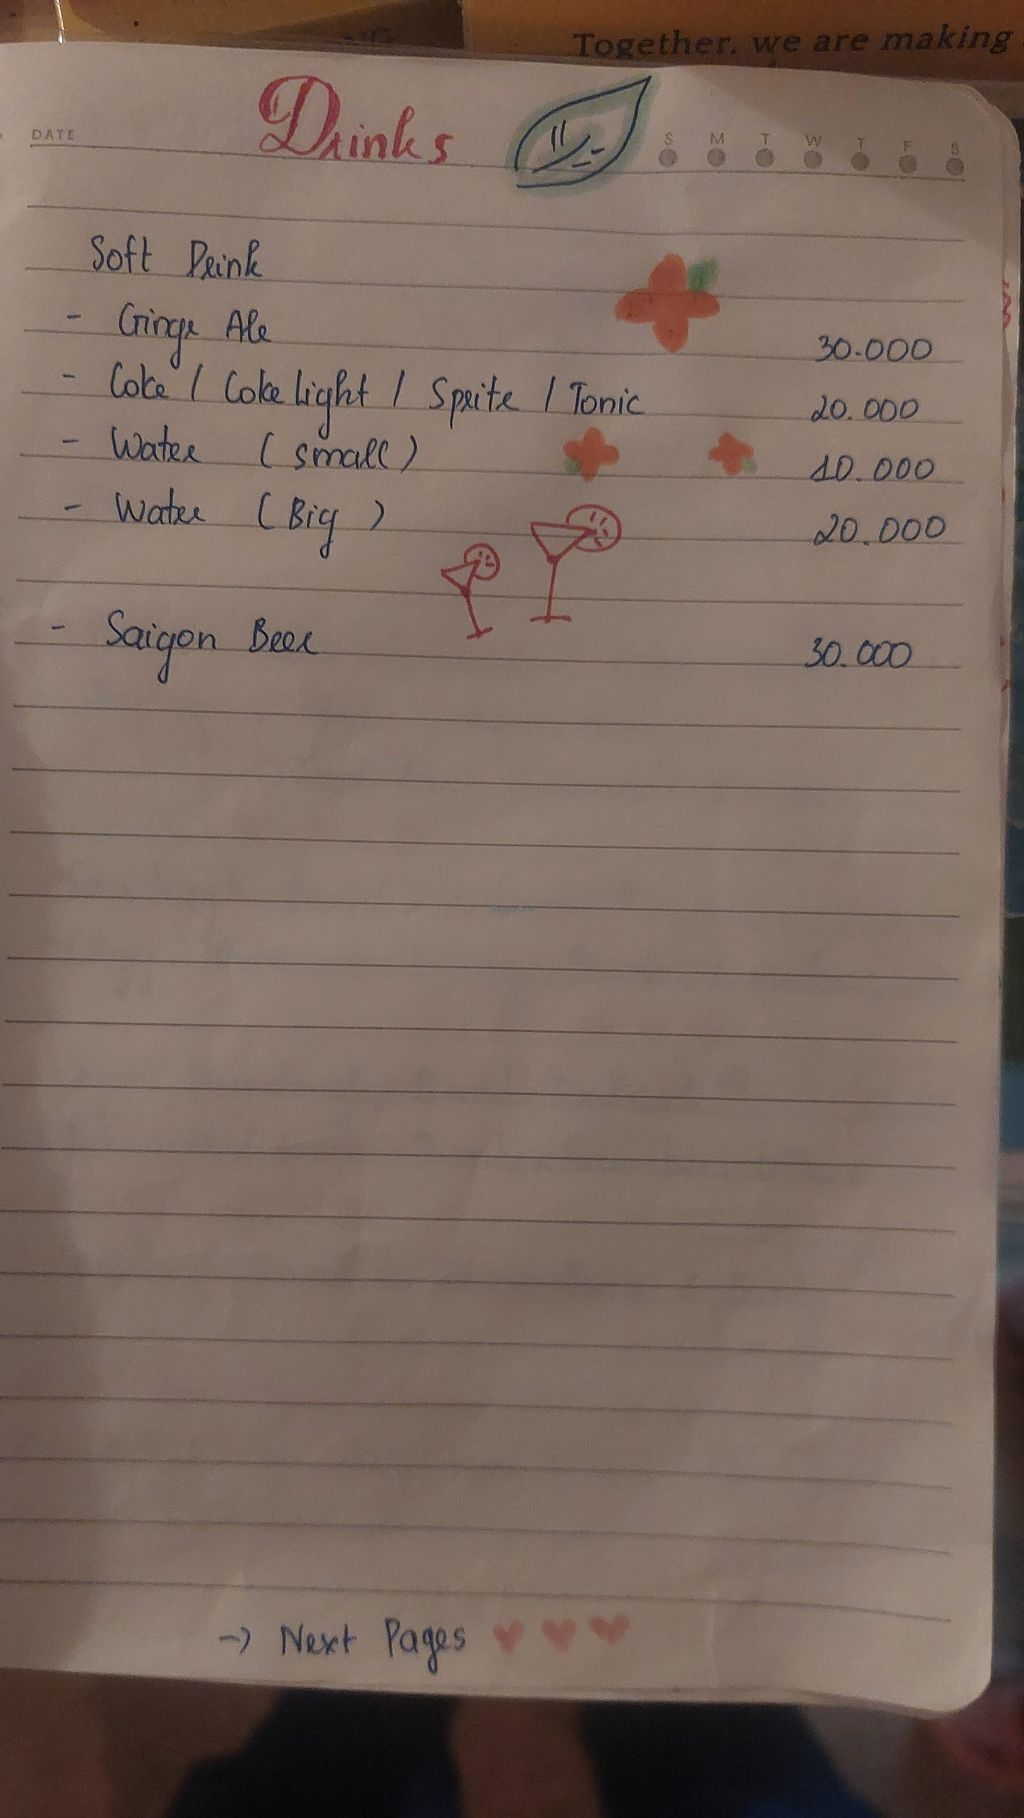 Together, we are making
DATE
Drinks
S M T W T F S
Soft Drink
- Ginge Ale 30.000
- Coke / Coke light / Sprite / Tonic 20.000
- Water (small) 10.000
- Water (Big) 20.000
- Saigon Beer 30.000
-> Next Pages